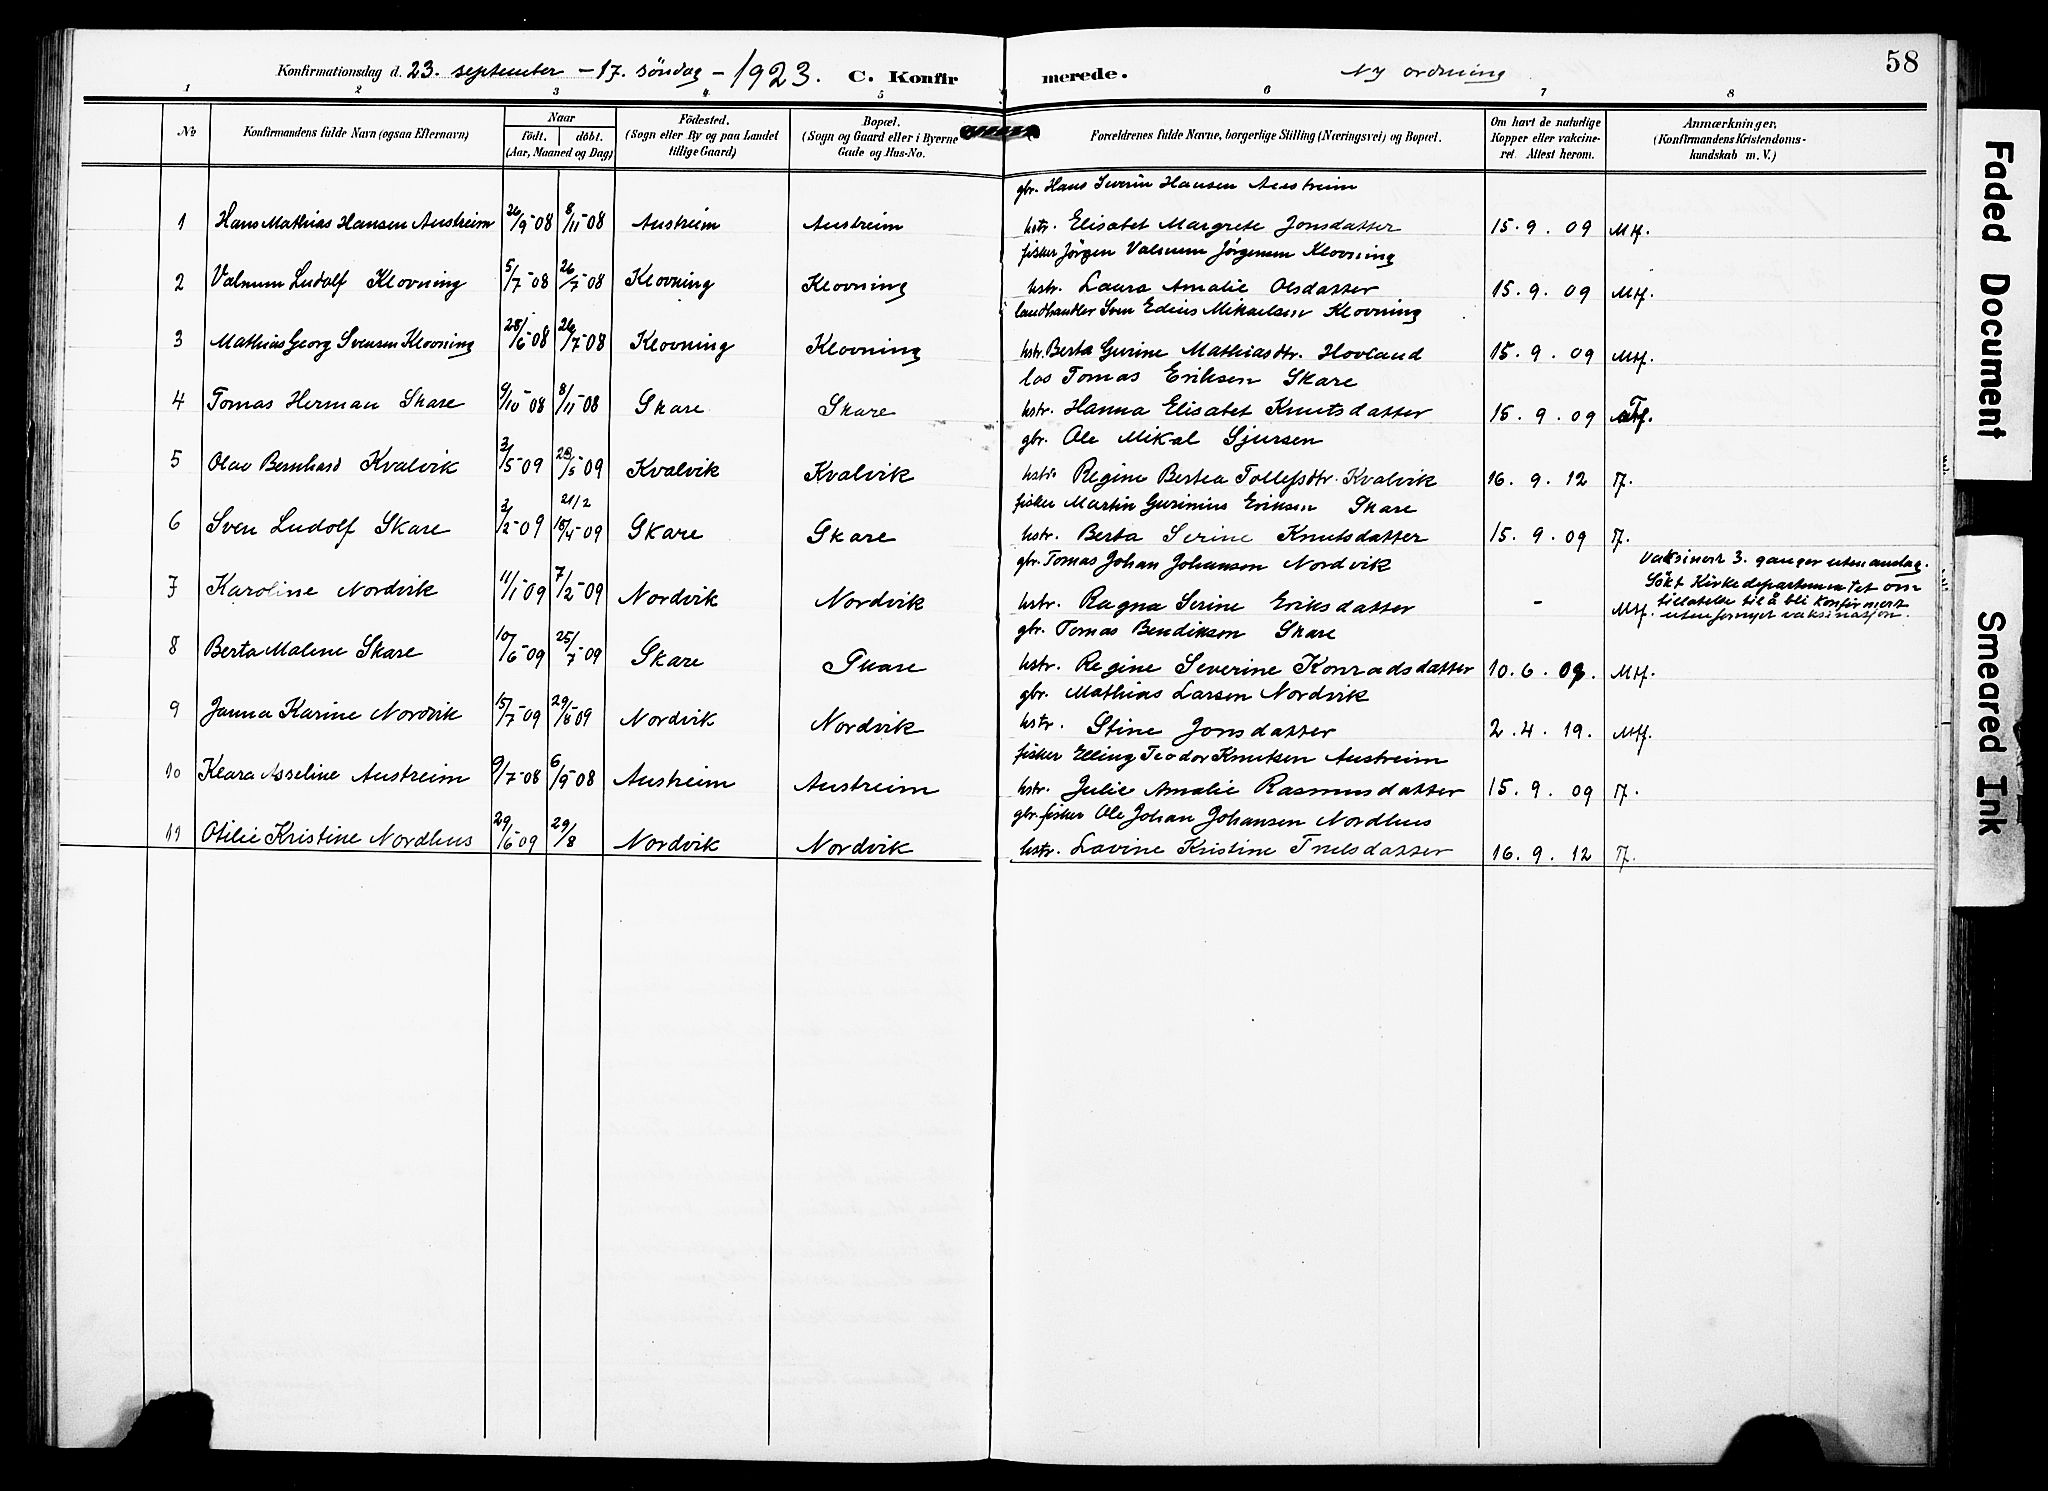 Konfirmationsdag d. 23. september - 17. söndag - 1923. C. Konfirmerede. Ny ordning 58
1 2 3 4 5 6 7 8
No
Konfirmandens fulde Navn (ogsaa Efternavn)
Naar
födt. döbt.
(Aar, Maaned og Dag)
Födested.
(Sogn eller By og paa Landet
tillige Gaard)
Bopæl.
(Sogn og Gaard eller i Byerne
Gade og Hus-No.
Forældrenes fulde Navne, borgerlige Stilling (Næringsvei) og Bopæl.
Om havt de naturlige
Kopper eller vakcine-
ret. Attest herom.
Anmærkninger,
(Konfirmandens Kristendoms-
kundskab m. V.)
gbr. Hans Severin Hansen Austreim
1 Hans Mathias Hansen Austreim 26/9-08 8/11-08 Austreim Austreim hstr. Elisabet Margrete Jonsdatter 15. 9. 09 Mtf.
fisker Jörgen Valnum Jörgensen Klovning
2 Valnum Ludolf Klovning 5/7-08 26/7-08 Klovning Klovning hstr. Laura Amalie Olsdatter 15. 9. 09 Mtf.
landhandler Sven Edeus Mikaelsen Klovning
3 Mathias Georg Svensen Klovning 28/6-08 26/7-08 Klovning Klovning hstr. Berta Gurine Mathiasdtr. Hovland 15. 9. 09 Mtf.
los Tomas Eriksen Skare
4 Tomas Herman Skare 9/10-08 8/11-08 Skare Skare hstr. Hanna Elisabet Knutsdatter 15. 9. 09 Tf.
gbr. Ole Mikal Sjursen
5 Olav Bernhard Kvalvik 3/5-09 23/5-09 Kvalvik Kvalvik hstr. Regine Bertea Tollefsdtr. Kvalvik 16. 9. 12 Tf.
21/2
fisker Martin Gurinius Eriksen Skare
6 Sven Ludolf Skare 2/2-09 18/4-09 Skare Skare hstr. Berta Serine Knutsdatter 15. 9. 09 Tf.
gbr. Tomas Johan Johanson Nordvik
Vaksinert 3. ganger uten anslag.
Sökt Kirkedepartementet om
tillatelse til å bli konfirmert
uten fornyet vaksinasjon.
7 Karoline Nordvik 11/1-09 7/2-09 Nordvik Nordvik hstr. Ragna Serine Eriksdatter - Mtf.
gbr. Tomas Bendikson Skare
8 Berta Malene Skare 10/6-09 25/7-09 Skare Skare hstr. Regine Severine Konradsdatter 10. 6. 09. Mtf.
gbr. Mathias Larsen Nordvik
9 Janna Karine Nordvik 15/7-09 29/8-09 Nordvik Nordvik hstr. Stine Jonsdatter 2. 4. 19. Mtf.
fisker Elling Teodor Knutsen Austreim
10 Klara Asseline Austreim 9/7-08 6/9-08 Austreim Austreim hstr. Julie Amalie Rasmusdatter 15. 9. 09 Tf.
gbr. fisker Ole Johan Johansen Nordhus
11 Otilie Kristine Nordhus 29/6-09 29/8 Nordvik Nordvik hstr. Lavine Kristine Trulsdatter 16. 9. 12 Tf.
Faded Document
Smeared Ink